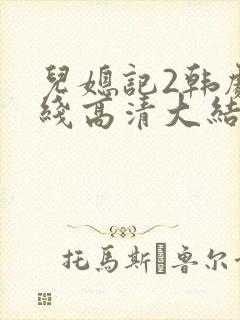 兒媳記2韩劇
綫高清大結
托馬斯·鲁尔